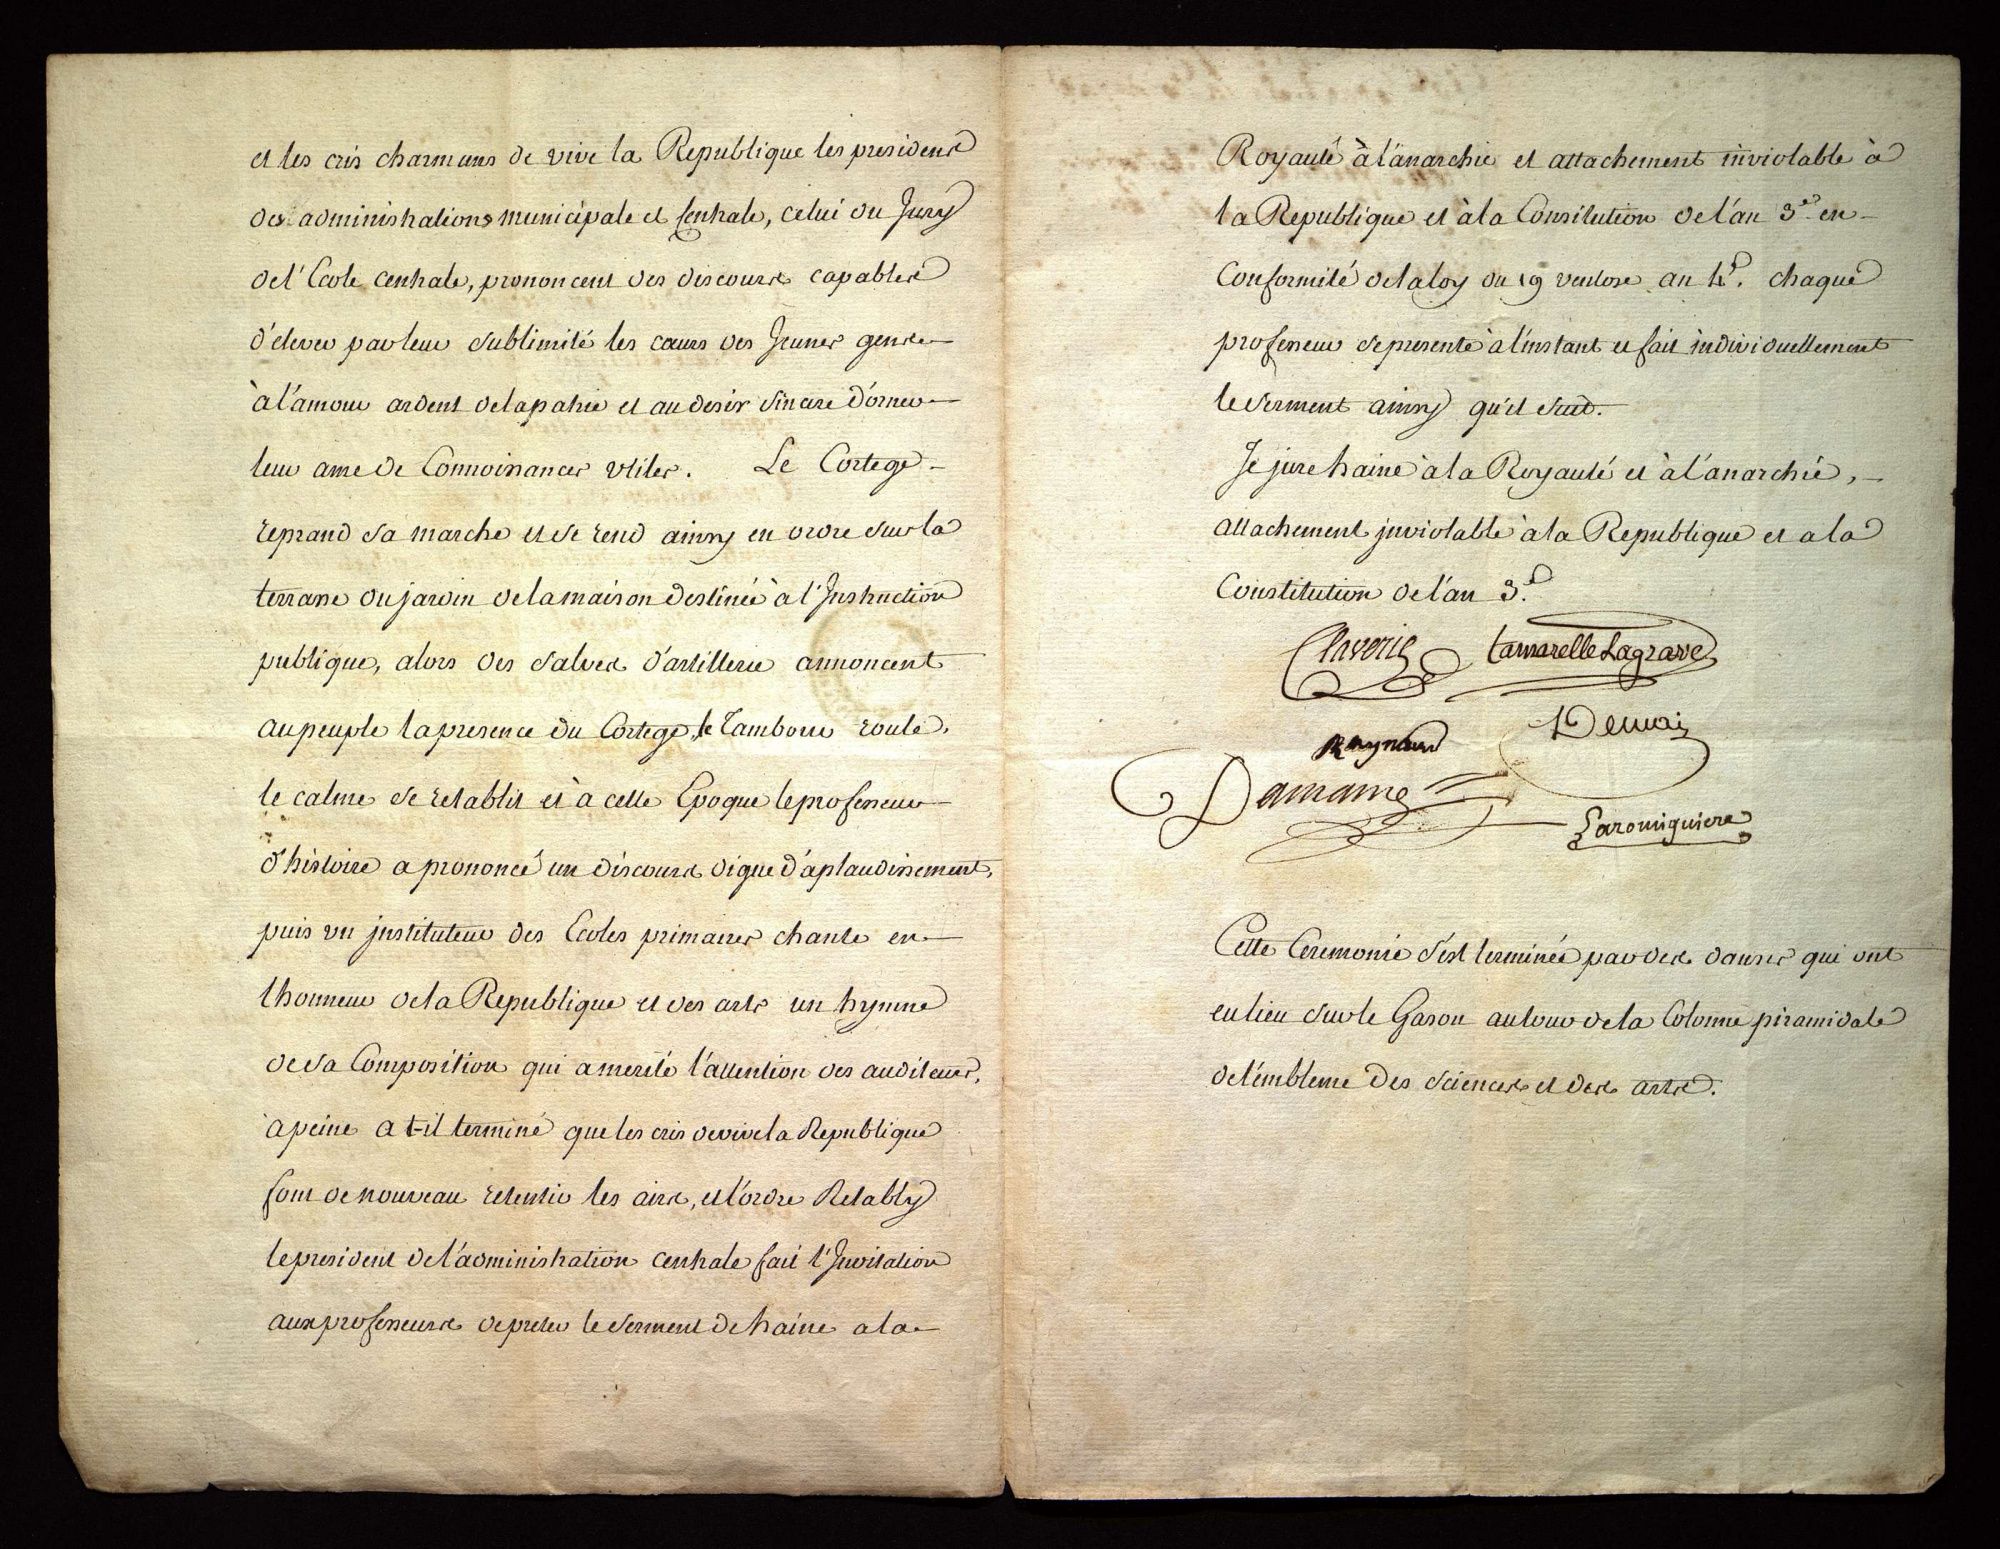 et les cris charmans de vive la Republique les presidens
des administrations municipale et Centrale, celui du Jury
de l'Ecole centrale, prononcent des discours capables
d'elever par leur sublimité les cœurs des Jeunes gens
à l'amour ardent de la patrie et au desir sincere d'orner
leur ame de Connoissances utiles. Le Cortege
reprand sa marche et se rend ainsy en ordre sur la
terrasse du jardin de la maison destinée à l'Instruction
publique, alors des salves d'artillerie annoncent
au peuple la presence du Cortege, le Tambour roule,
le calme se retablit et à cette Epoque le professeur
d'histoire a prononcé un discours digne d'aplaudissement,
puis un jnstituteur des Ecoles primaires chante en
lhonneur de la Republique et des arts un hymne
de sa Composition qui a merité l'attention des auditeurs,
à peine a t-il terminé que les cris de vive la Republique
font de nouveau retentir les airs, et l'ordre Retably
le president de l'administration centrale fait l'Invitation
aux professeurs de preter le serment de haine a la
Royauté à l'anarchie et attachement inviolable à
la Republique et à la Consitution de l'an 3e en
Conformité de la loy du 19 ventose an 4e. chaque
professeur se presente à l'instant et fait individuellement
le serment ainsy qu'il suit.
Je jure haine à la Royauté et à l'anarchie,
attachement jnviolable à la Republique et a la
Constitution de l'an 3e.
Claverie Lamarelle Lagrave
Raynaud Demai
Damame
Laromiguiere
Cette Ceremonie s'est terminée par des danses qui ont
eu lieu sur le Gason autour de la Colonne piramidale
de l'embleme des sciences et des arts.